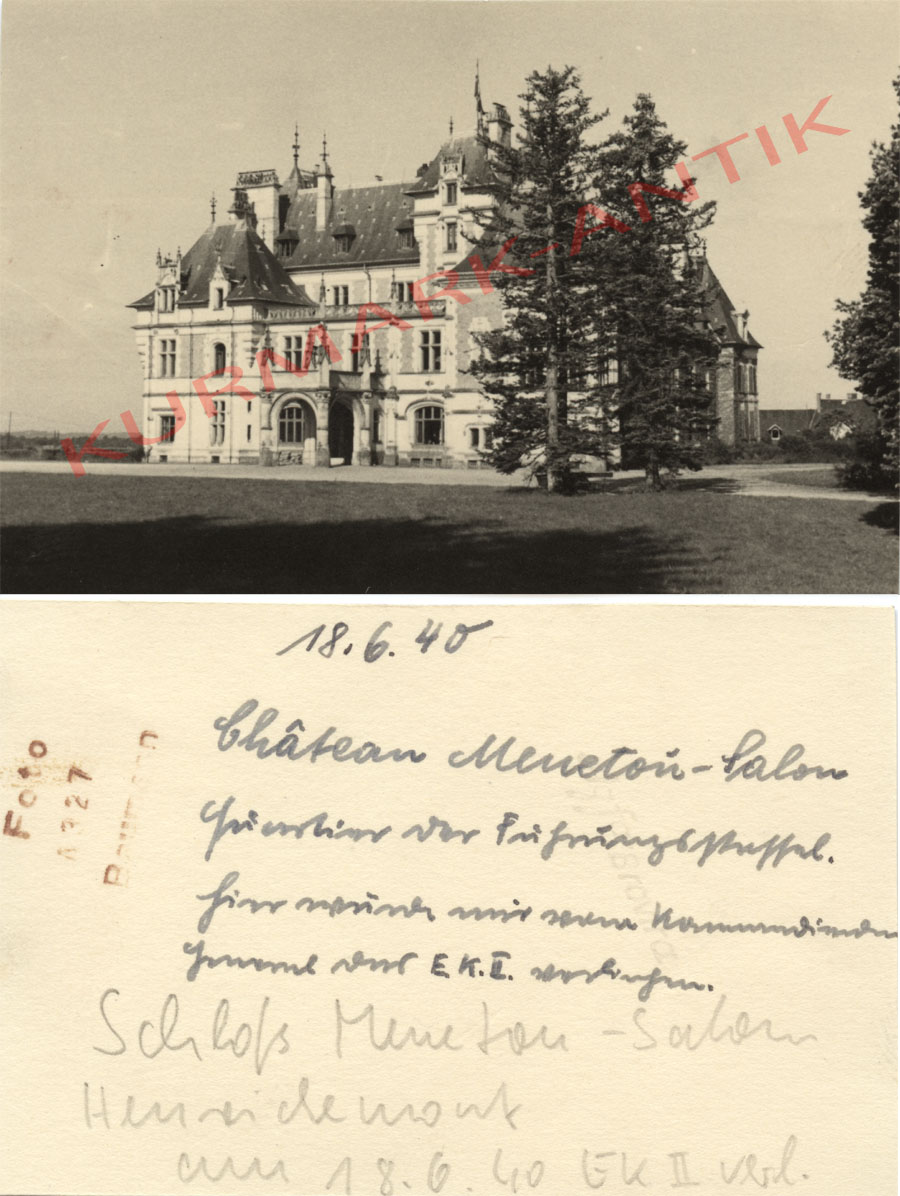 KURMARK-ANTIK
18.6.40
Château Menetou-Salon
Quartier der Führungsstaffel.
Hier wurde mir vom Kommandierenden
General das E.K.II. verliehen.
Foto
A327
Baumann
Schloß Menetou-Salon
Henrichemont
am 18.6.40 EK II verl.